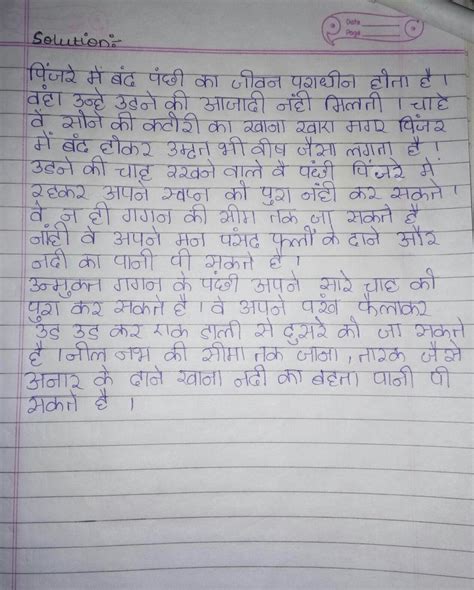 Date
Page
Solution:-
पिंजरे में बंद पंछी का जीवन पराधीन होता है ।
वंहा उन्हे उडने की आजादी नंही मिलती । चाहे
वे सोने की कटोरी का खाना खारा मगर पिंजर
में बंद होकर उम्रत भी वीष जैसा लगता है ।
उडने की चाह रखने वाले वे पंछी पिंजरे में
रहकर अपने स्वप्न को पुरा नंही कर सकते ।
वे न ही गगन की सीमा तक जा सकते है
नांही वे अपने मन पसंद फुलों के दाने और
नदी का पानी पी सकते है ।
उन्मुक्त गगन के पंछी अपने सारे चाह को
पुरा कर सकते है । वे अपने पंख फैलाकर
उड उड कर एक डाली से दुसरे को जा सकते
है । नील नभ की सीमा तक जाना , तारक जैसे
अनार के दाने खाना नदी का बहता पानी पी
सकते है ।